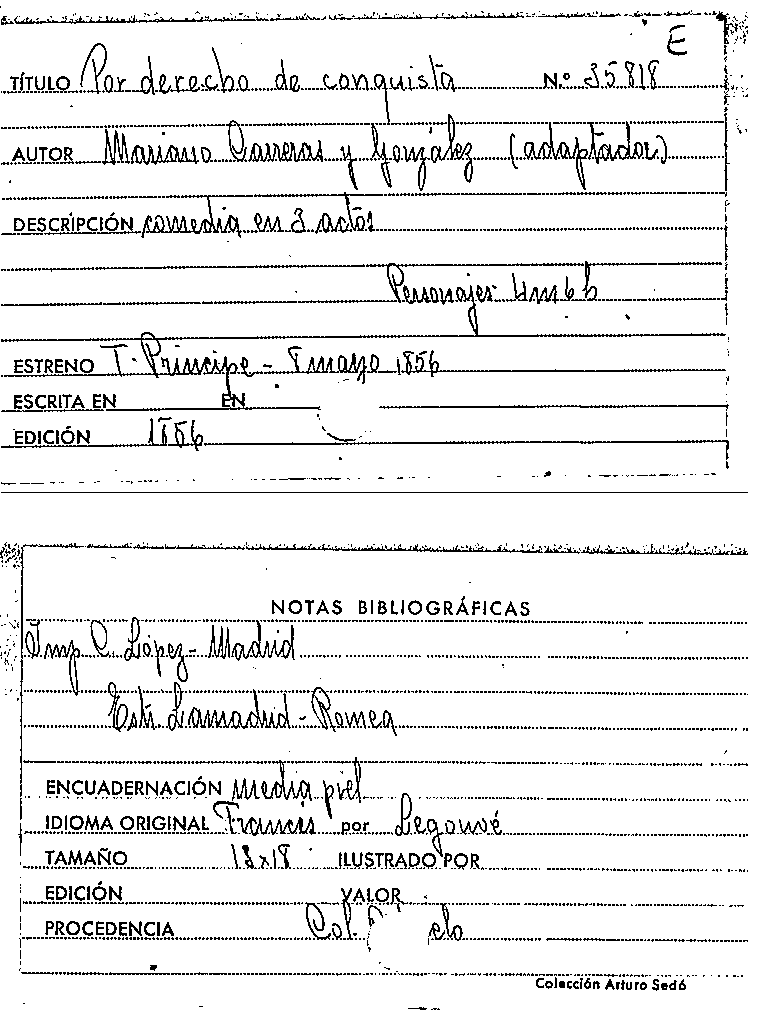 E
TÍTULO Por derecho de conquista N.º 35818
AUTOR Mariano Carreras y González (adaptador)
DESCRIPCIÓN comedia en 3 actos
Personajes 4m 6h
ESTRENO T. Príncipe - 8 mayo 1856
ESCRITA EN EN
EDICIÓN 1856
NOTAS BIBLIOGRÁFICAS
Imp C. López - Madrid
Estr. Lamadrid - Romea
ENCUADERNACIÓN media piel
IDIOMA ORIGINAL Francés por Legouvé
TAMAÑO 18x18 ILUSTRADO POR
EDICIÓN VALOR
PROCEDENCIA Col.
Colección Arturo Sedó